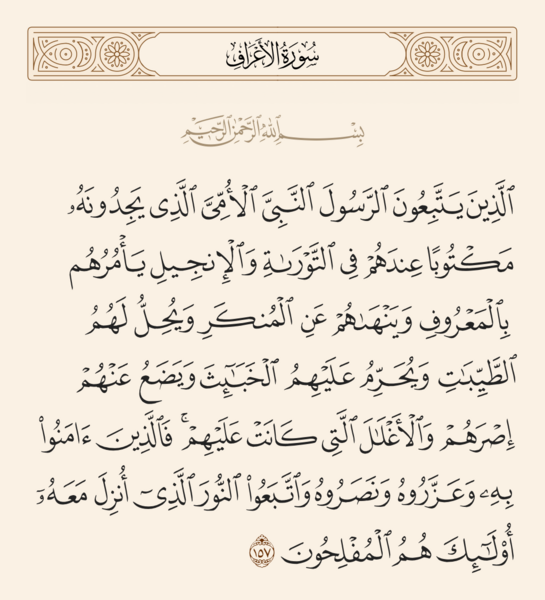 سُورَةُ الأَعْرَافِ
بِسْمِ ٱللَّهِ ٱلرَّحْمَٰنِ ٱلرَّحِيمِ
ٱلَّذِينَ يَتَّبِعُونَ ٱلرَّسُولَ ٱلنَّبِىَّ ٱلْأُمِّىَّ ٱلَّذِى يَجِدُونَهُۥ
مَكْتُوبًا عِندَهُمْ فِى ٱلتَّوْرَىٰةِ وَٱلْإِنجِيلِ يَأْمُرُهُم
بِٱلْمَعْرُوفِ وَيَنْهَىٰهُمْ عَنِ ٱلْمُنكَرِ وَيُحِلُّ لَهُمُ
ٱلطَّيِّبَٰتِ وَيُحَرِّمُ عَلَيْهِمُ ٱلْخَبَٰٓئِثَ وَيَضَعُ عَنْهُمْ
إِصْرَهُمْ وَٱلْأَغْلَٰلَ ٱلَّتِى كَانَتْ عَلَيْهِمْ ۚ فَٱلَّذِينَ ءَامَنُوا۟
بِهِۦ وَعَزَّرُوهُ وَنَصَرُوهُ وَٱتَّبَعُوا۟ ٱلنُّورَ ٱلَّذِىٓ أُنزِلَ مَعَهُۥٓ
أُو۟لَٰٓئِكَ هُمُ ٱلْمُفْلِحُونَ ١٥٧